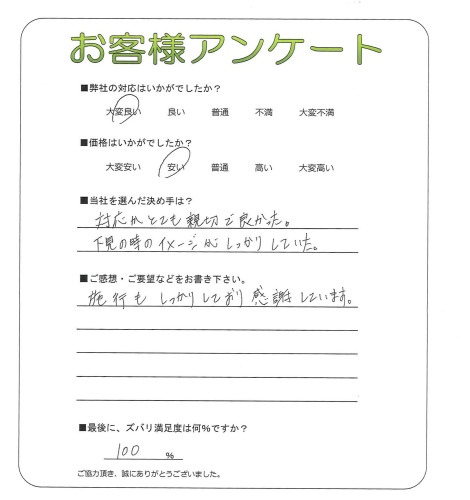 お客様アンケート
■弊社の対応はいかがでしたか？
大変良い 良い 普通 不満 大変不満
■価格はいかがでしたか？
大変安い 安い 普通 高い 大変高い
■当社を選んだ決め手は？
対応がとても親切で良かった。
下見の時のイメージがしっかりしていた。
■ご感想・ご要望などをお書き下さい。
施行もしっかりしており感謝しています。
■最後に、ズバリ満足度は何%ですか？
100 %
ご協力頂き、誠にありがとうございました。